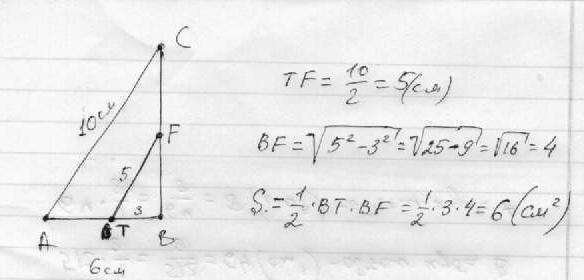 C
10см
F
5
3
A
T
B
6см
TF = 10/2 = 5(см)
BF = √5²-3² = √25-9 = √16 = 4
S = 1/2 · BT · BF = 1/2 · 3 · 4 = 6 (см²)